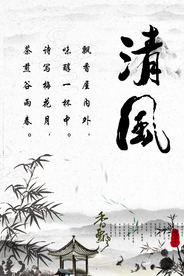 清風
飘香屋内外，
味醇一杯中。
诗写梅花月，
茶煎谷雨春。